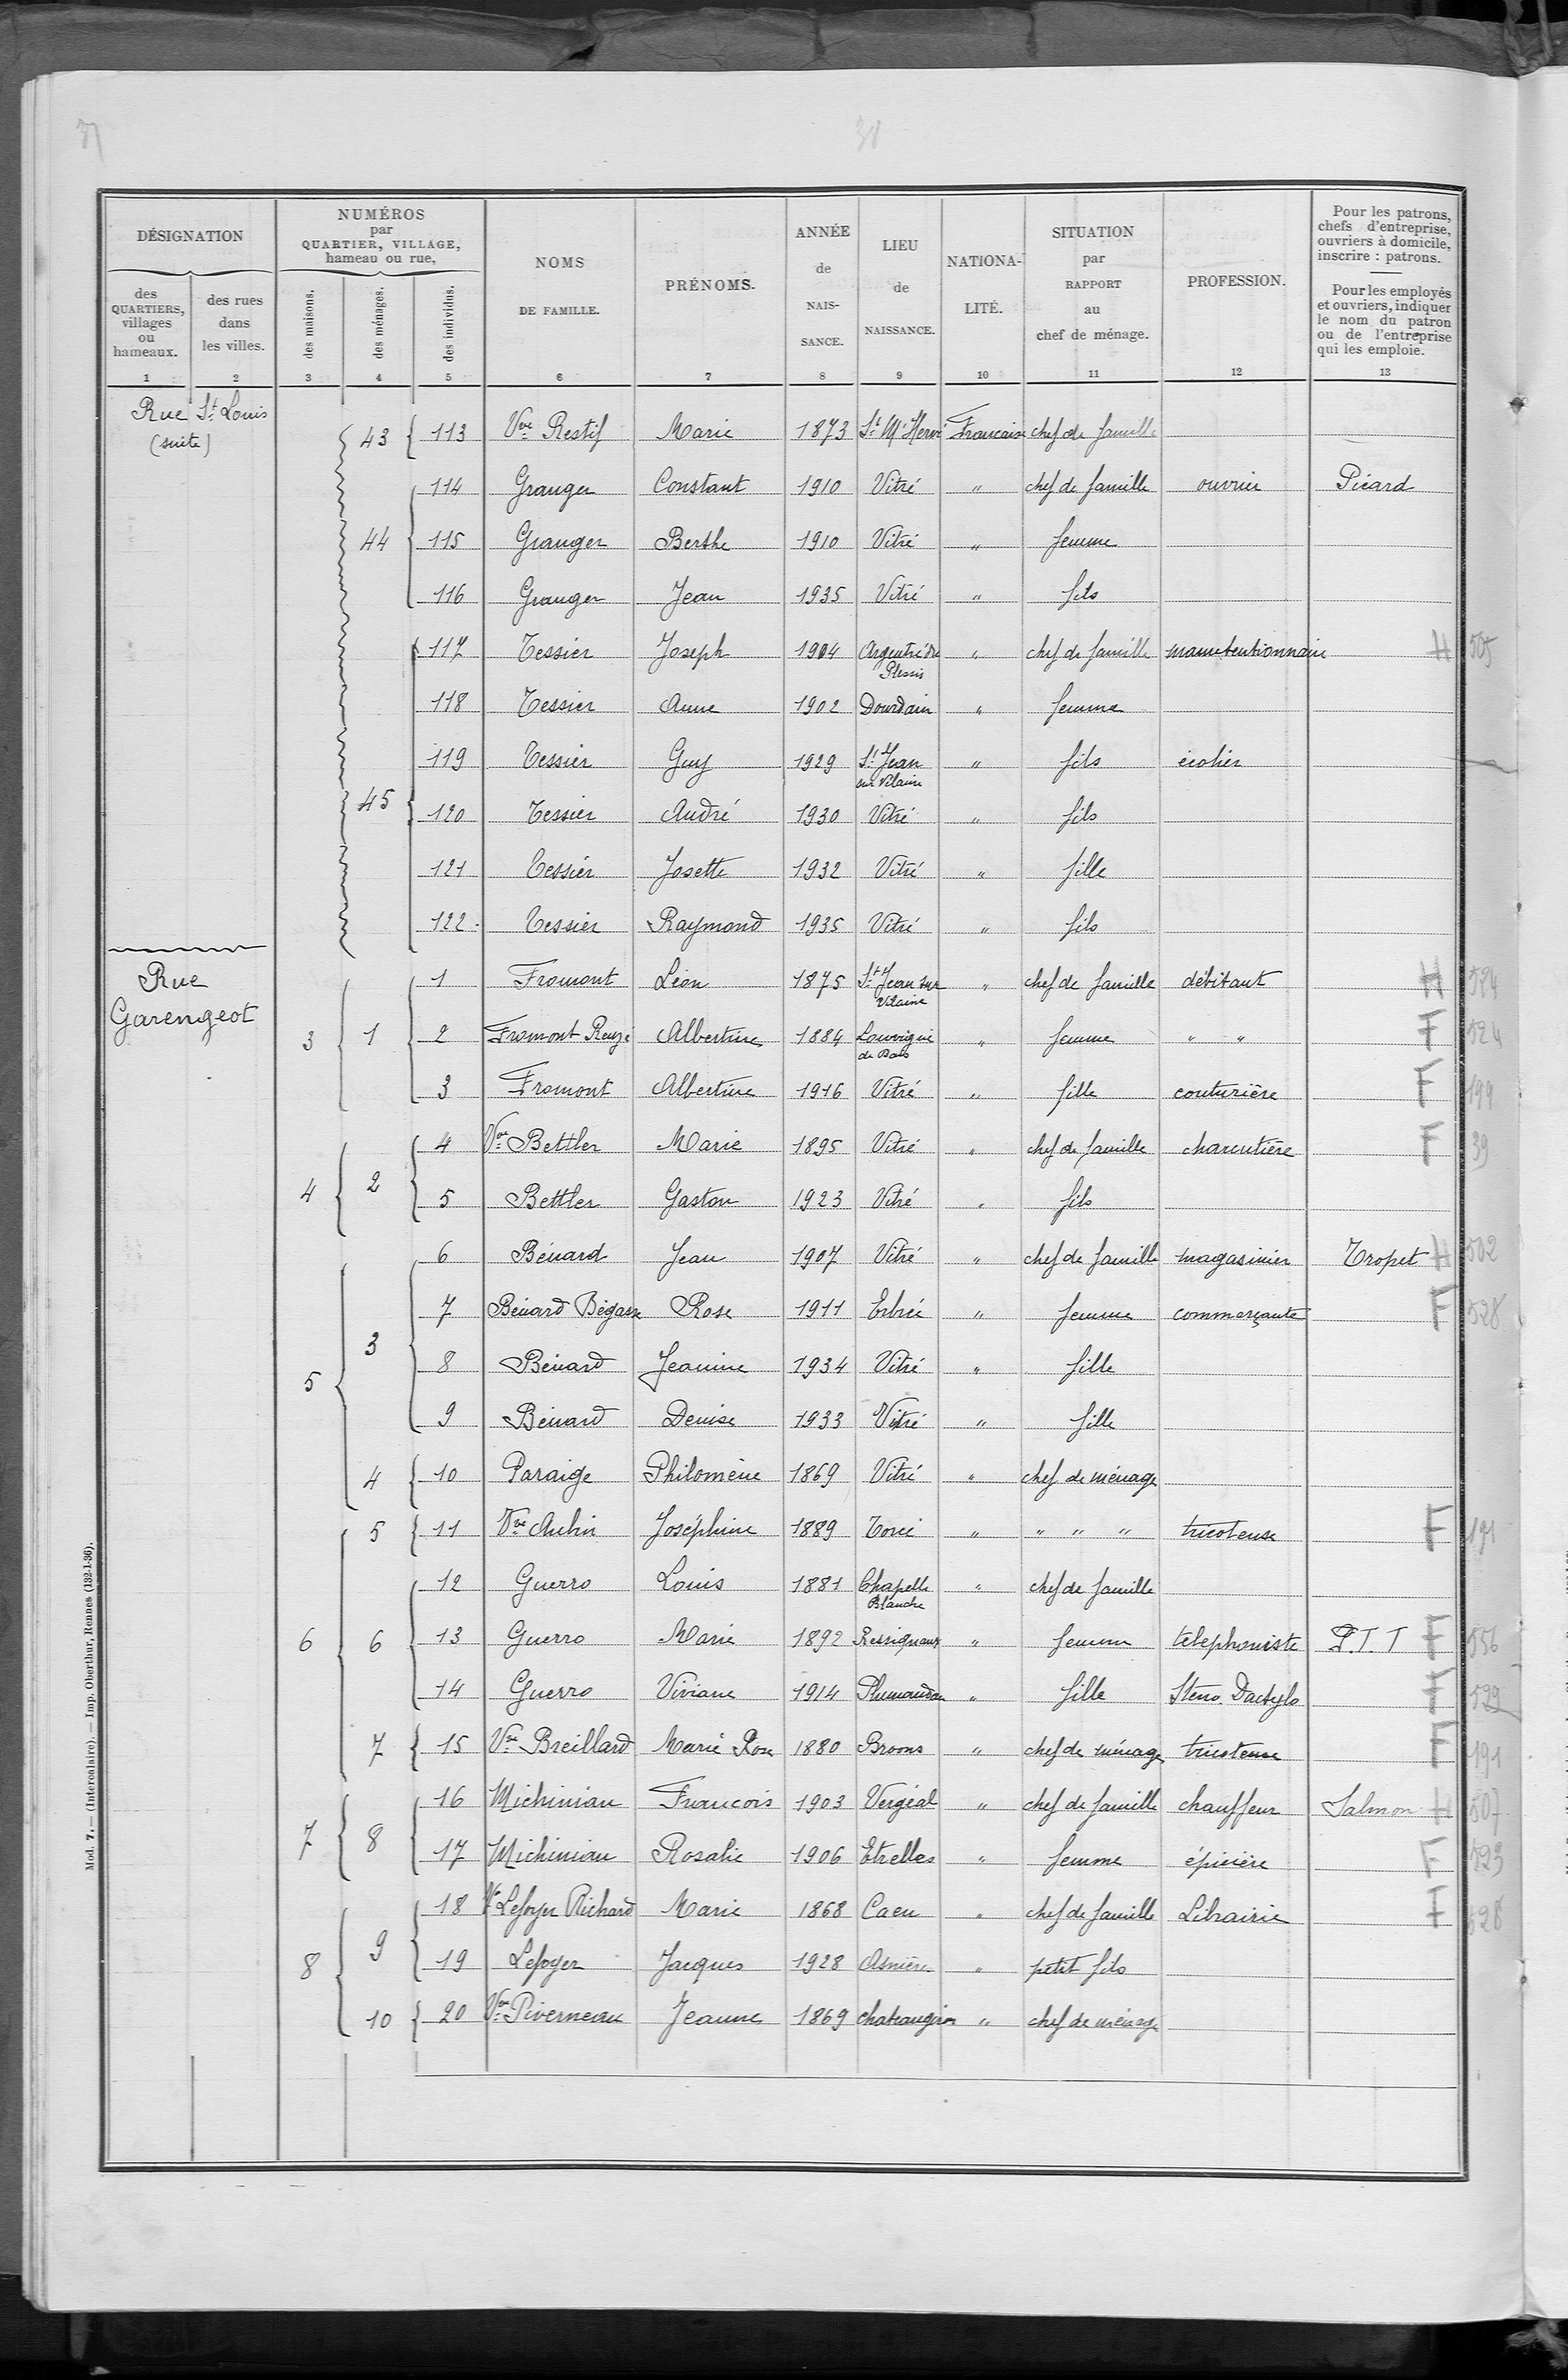 38
DÉSIGNATION
NUMÉROS par QUARTIER, VILLAGE, hameau ou rue,
NOMS DE FAMILLE.
PRÉNOMS.
ANNÉE de NAIS-SANCE.
LIEU de NAISSANCE.
NATIONA-LITÉ.
SITUATION par RAPPORT au chef de ménage.
PROFESSION.
Pour les patrons, chefs d'entreprise, ouvriers à domicile, inscrire : patrons.
Pour les employés et ouvriers, indiquer le nom du patron ou de l'entreprise qui les emploie.
des QUARTIERS, villages ou hameaux.
des rues dans les villes.
des maisons.
des ménages.
des individus.
1 2 3 4 5 6 7 8 9 10 11 12 13
Rue St Louis (suite)
43 113 Vve Restif Marie 1873 St M' Hervé Francaise chef de famille
114 Granger Constant 1910 Vitré " chef de famille ouvrier Picard
44 115 Granger Berthe 1910 Vitré " femme
116 Granger Jean 1935 Vitré " fils
117 Tessier Joseph 1904 Argentré du Plessis " chef de famille manutentionnaire H 505
118 Tessier Anne 1902 Dourdain " femme
119 Tessier Guy 1929 St Jean sur Vilaine " fils écolier
45 120 Tessier André 1930 Vitré " fils
121 Tessier Josette 1932 Vitré " fille
122 Tessier Raymond 1935 Vitré " fils
Rue Garengeot
1 Fromont Léon 1875 St Jean sur Vilaine " chef de famille débitant H 524
3 1 2 Fromont Reuzé Albertine 1884 Louvigné de Bais " femme " " F 524
3 Fromont Albertine 1916 Vitré " fille couturière F 199
4 Vve Bettler Marie 1895 Vitré " chef de famille charcutière F 39
4 2 5 Bettler Gaston 1923 Vitré " fils
6 Bénard Jean 1907 Vitré " chef de famille magasinier Tropet H 502
7 Bénard Bégasse Rose 1911 Erbrée " femme commerçante F 528
5 3 8 Bénard Jeanine 1934 Vitré " fille
9 Bénard Denise 1933 Vitré " fille
4 10 Paraige Philomène 1869 Vitré " chef de ménage
5 11 Vve Aubin Joséphine 1889 Torcé " " " " tricoteuse F 191
12 Guerro Louis 1881 Chapelle Blanche " chef de famille
6 6 13 Guerro Marie 1892 " femme telephoniste P.T.T F 556
14 Guerro Viviane 1914 Plumaudan " fille Sténo Dactylo F 529
7 15 Vve Breillard Marie Rose 1880 Broons " chef de ménage tricoteuse F 191
16 Michiniau Francois 1903 Vergéal " chef de famille chauffeur Salmon H 507
7 8 17 Michiniau Rosalie 1906 Etrelles " femme épicière F 523
18 Ve Lefoyer Richard Marie 1868 Caen " chef de famille Librairie F 528
8 9 19 Lefoyer Jacques 1928 Asnière " petit fils
10 20 Vve Piverneau Jeanne 1869 chateaugiron " chef de ménage
Mod. 7. — (Intercalaire). — Imp. Oberthur, Rennes (132-1-36).